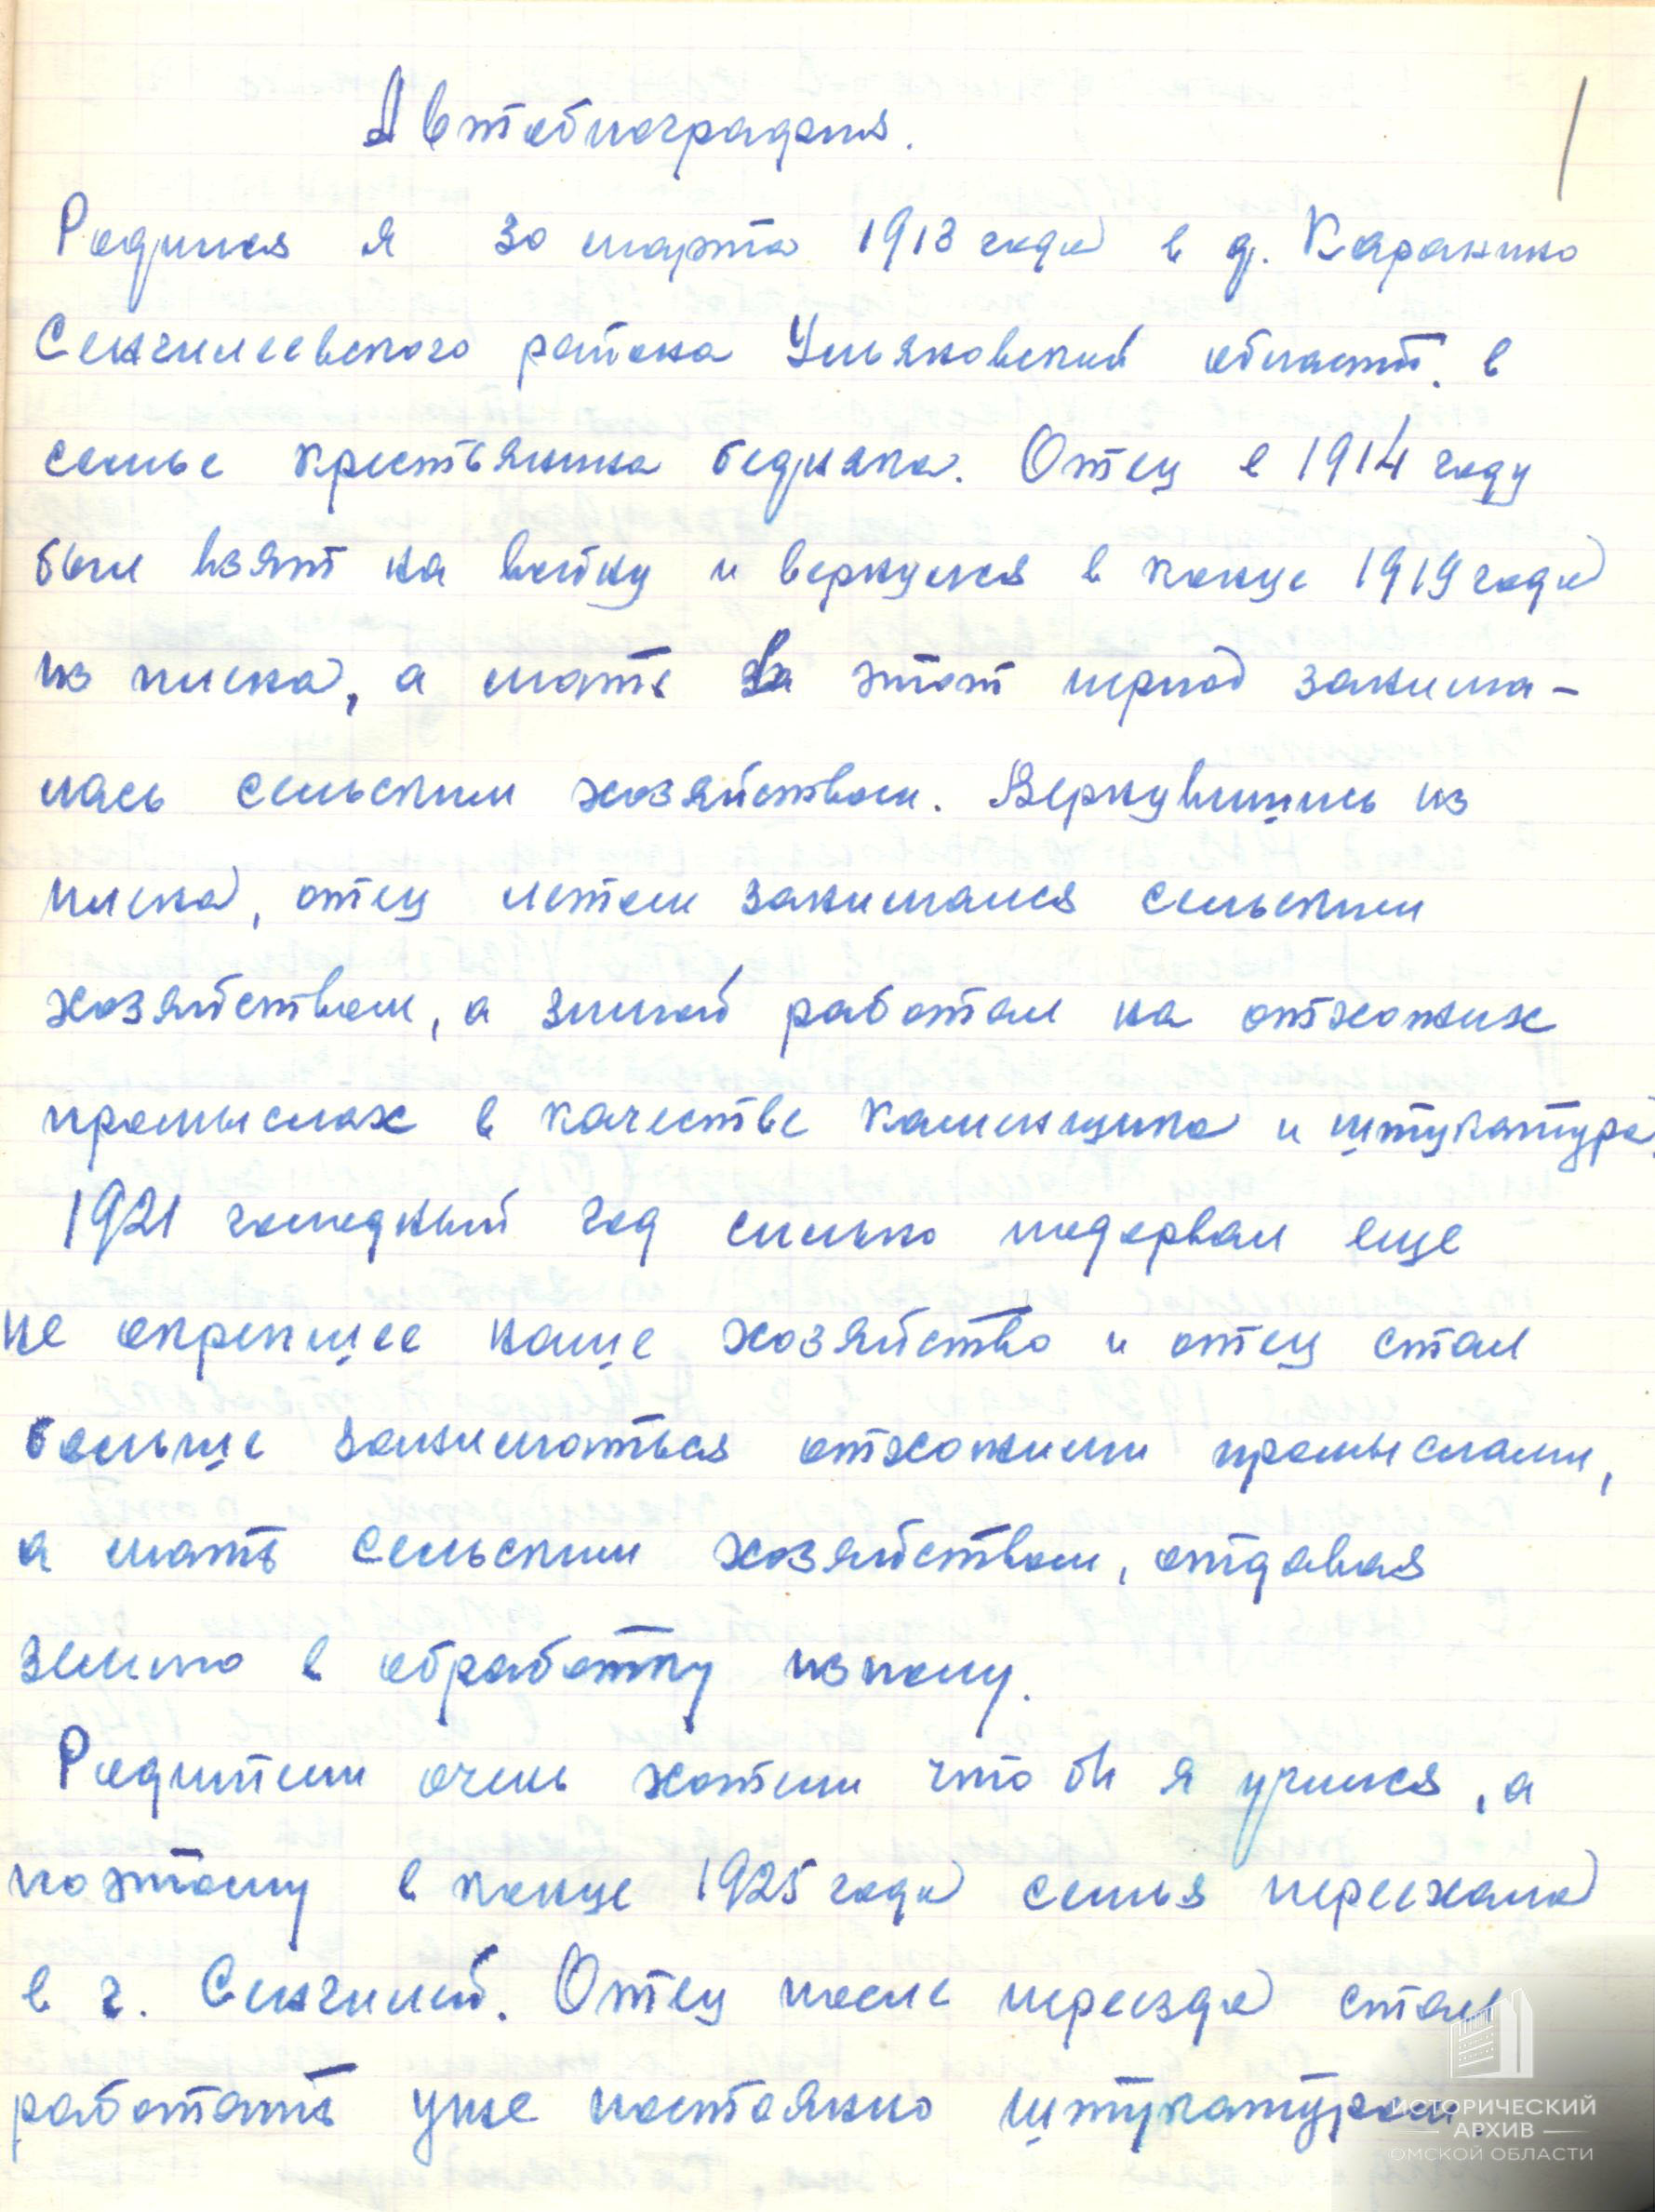 Автобиография.
1
Родился я 30 марта 1913 года в д. Каранино
Сенгилеевского района Ульяновский област. в
семье крестьянина бедняка. Отец в 1914 году
был взят на войну и вернулся в конце 1919 года
из плена, а мать за этот период занима-
лась сельским хозяйством. Вернувшись из
плена, отец летом занимался сельским
хозяйством, а зимой работал на отхожих
промыслах в качестве каменщика и штукатура.
1921 голодный год сильно подорвал еще
не окрепшее наше хозяйство и отец стал
больше заниматься отхожими промыслами,
а мать сельским хозяйством, отдавая
землю в обработку исполу.
Родители очень хотели что бы я учился, а
поэтому в конце 1925 года семья переехала
в г. Сенгилей. Отец после переезда стал
работать уже постоянно штукатуром.
ИСТОРИЧЕСКИЙ
АРХИВ
ОМСКОЙ ОБЛАСТИ